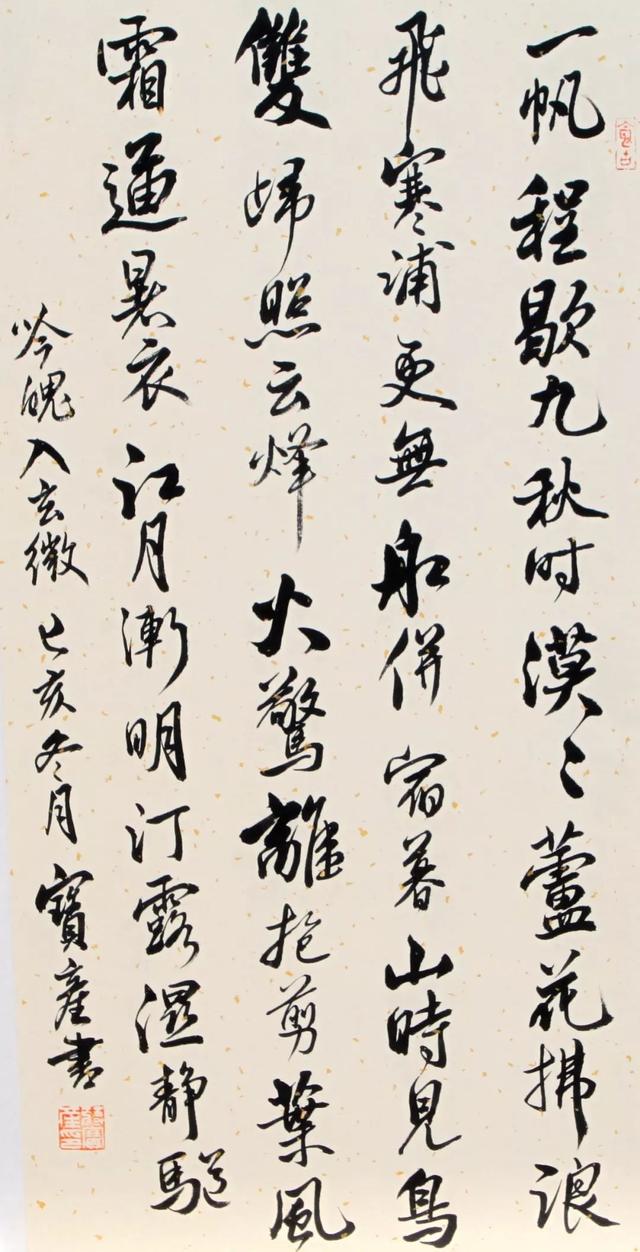 一帆程歇九秋时漠〻蘆花拂浪
飛寒浦更無船併宿暮山時見鳥
雙歸照云烽火驚離抱剪葉風
霜逼暑衣江月漸明汀露濕静驅
吟魄入玄微 己亥冬月 寶產書